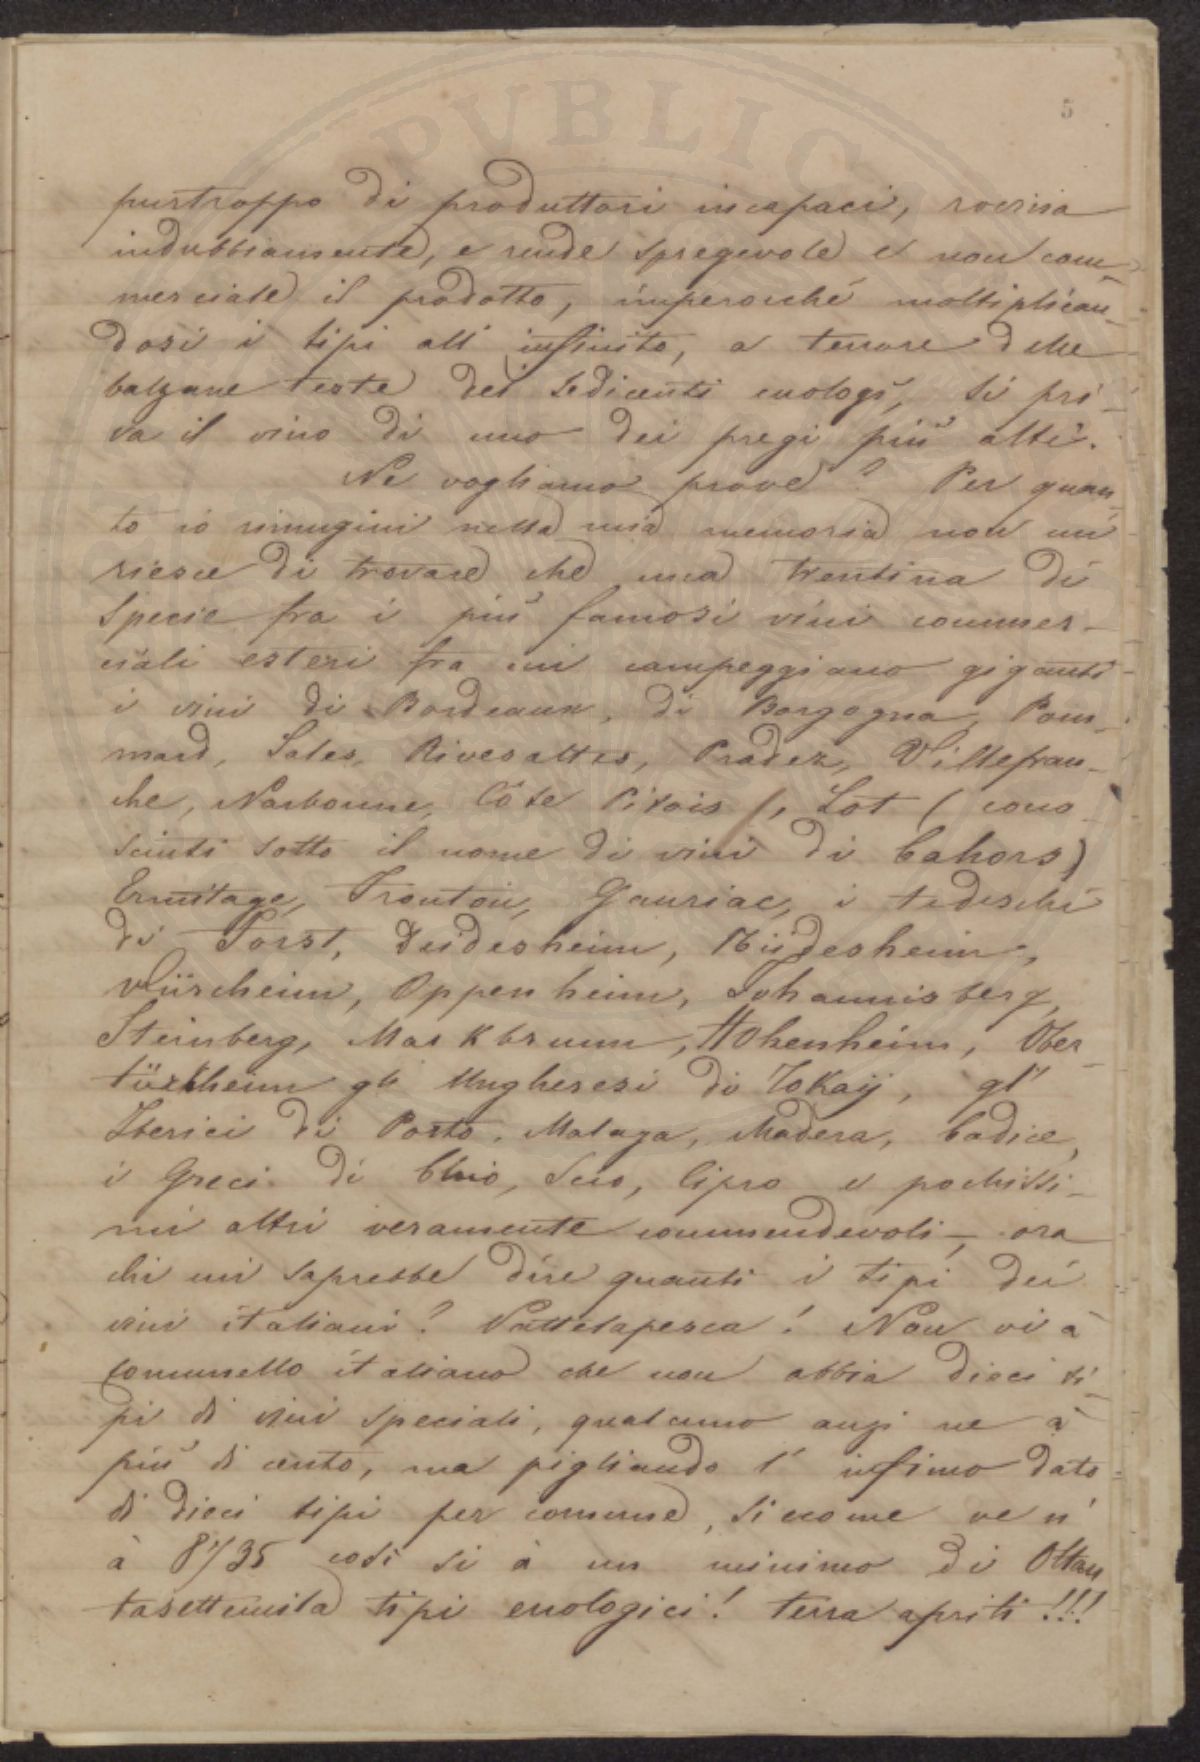 PVBLIC
5
purtroppo di produttori incapaci, rovina
indubbiamente, e rende spregevole e non com-
merciale il prodotto, imperocché moltiplican-
dosi i tipi all' infinito, a tenore delle
balzane teste dei sedicenti enologi, si pri-
va il vino di uno dei pregi più alti.
Ne vogliamo prove? Per quan-
to io rimugini nella mia memoria non mi
riesce di trovare che una trentina di
specie fra i più famosi vini commer-
ciali esteri fra cui campeggiano giganti
i vini di Bordeaux, di Borgogna, Pom-
mard, Sales, Rivesaltes, Pradez, Villefran-
che, Narbonne, Côte Pitois, Lot (cono-
sciuti sotto il nome di vini di Cahors)
Ermitage, Frontoin, Gauriac, i tedeschi
di Forst, Deidesheim, Rüdesheim,
Dürcheim, Oppenheim, Johannisberg,
Steinberg, Markbrunn, Hohenheim, Ober-
türkheim gli Ungheresi di Tokaij, gl'
Iberici di Porto, Malaga, Madera, Cadice,
i Greci di Chio, Scio, Cipro e pochissi-
mi altri veramente commendevoli -, ora
chi mi saprebbe dire quanti i tipi dei
vini italiani? Vattelapesca! Non vi à
comunello italiano che non abbia dieci ti-
pi di vini speciali, qualcuno anzi ne à
più di cento, ma pigliando l' infimo dato
di dieci tipi per comune, siccome ve n'
à 8735 così si à un minimo di Ottan
tasettemila tipi enologici! terra apriti!!!